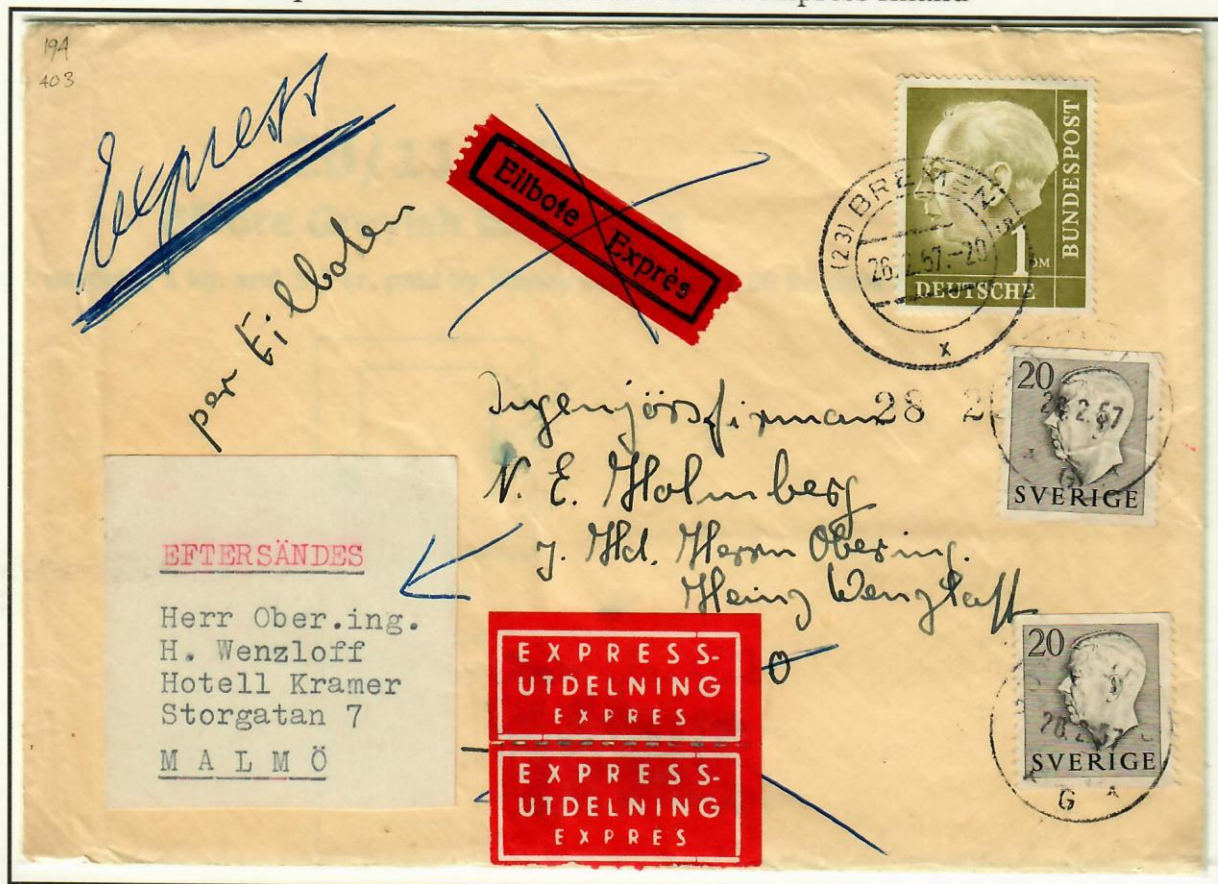 19A
403
Express
per Eilboten
Eilbote Exprès
(23) BREMEN
26.2.57.-20
x
1 DM
DEUTSCHE
BUNDESPOST
Ingenjörsfirman
28 2
N. E. Holmberg
z. Hd. Herrn Obering.
Heinz Wenzlaff
20
28.2.57
G
SVERIGE
EFTERSÄNDES
Herr Ober.ing.
H. Wenzloff
Hotell Kramer
Storgatan 7
MALMÖ
EXPRESS-
UTDELNING
EXPRES
EXPRESS-
UTDELNING
EXPRES
20
28.2.57
SVERIGE
G